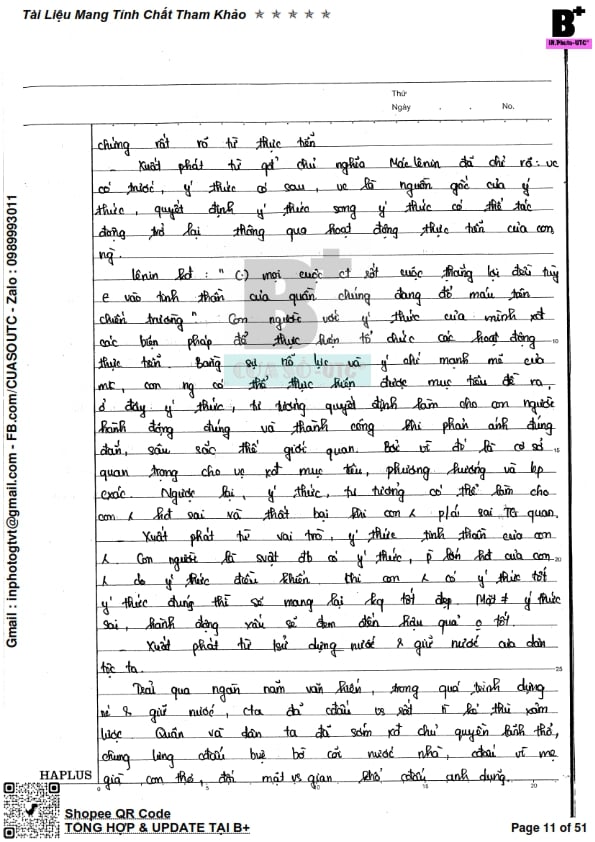 Tài Liệu Mang Tính Chất Tham Khảo ★ ★ ★ ★ ★
B+
IN.Photo-UTC*
Thứ
Ngày . . No.
chứng rất rõ từ thực tiễn
- Xuất phát từ qđ' chủ nghĩa Mác lênin đã chỉ rõ: vc
có trước, ý thức có sau, vc là nguồn gốc của ý
thức, quyết định ý thức song ý thức có thể tác
động trở lại thông qua hoạt động thực tiễn của con
ng.
lênin kđ: " (.) mọi cuộc ct rốt cuộc thắng lợi đều tùy
vào tinh thần của quần chúng đang đổ máu trên
chiến trường" Con người với ý thức của mình xđ
các biện pháp để thực hiện tổ chức các hoạt động
thực tiễn. Bằng sự nỗ lực và ý chí mạnh mẽ của
mk, con ng có thể thực hiện được mục tiêu đề ra,
ở đây ý thức, tư tưởng quyết định làm cho con người
hành động đúng và thành công khi phản ánh đúng
đắn, sâu sắc thế giới quan. Bởi vì đó là cơ sở
quan trọng cho vc xđ mục tiêu, phương hướng và bp
cxác. Ngược lại, ý thức, tư tưởng có thể làm cho
con hđ sai và thất bại khi con p/á sai TG quan.
Xuất phát từ vai trò, ý thức tinh thần của con
Con người là svật đb có ý thức, hđ của con
do ý thức điều khiển thì con có ý thức tốt
ý thức đúng thì sẽ mang lại kq tốt đẹp Mặt ≠ ý thức
sai, hành động xấu sẽ đem đến hậu quả o tốt.
- Xuất phát từ lsử dựng nước & giữ nước của dân
tộc ta.
Trải qua ngàn năm văn hiến, trong quá trình dựng
& giữ nước, cta đã cđấu vs rất kẻ thù xâm
lược Quân và dân ta đã sớm xđ chủ quyền lãnh thổ,
chung lưng cđấu bờ cõi nước nhà, vì mẹ
già con thơ, đối mặt vs gian khổ cđấu anh dũng.
5
10
15
20
25
HAPLUS
0 5 10 15 20
B+
CUASO-UTC
Gmail : inphotogtvt@gmail.com - FB.com/CUASOUTC - Zalo : 0989993011
Shopee QR Code
TỔNG HỢP & UPDATE TẠI B+
Page 11 of 51